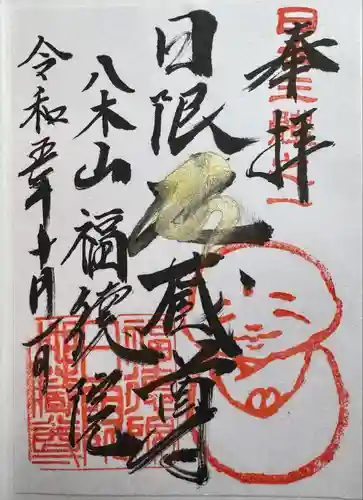 奉拝
日限地蔵尊
八木山 福徳院
令和五年十月一日